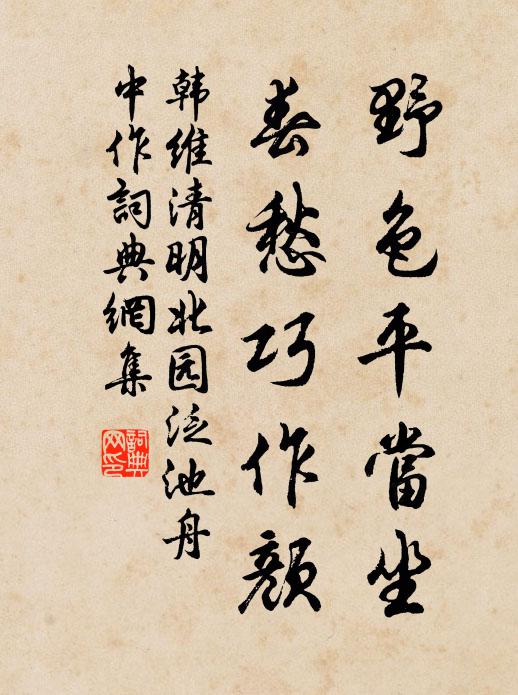 野色平當坐
春愁巧作顔
韩維清明北园泛池舟
中作詞典網集
詞典
网印